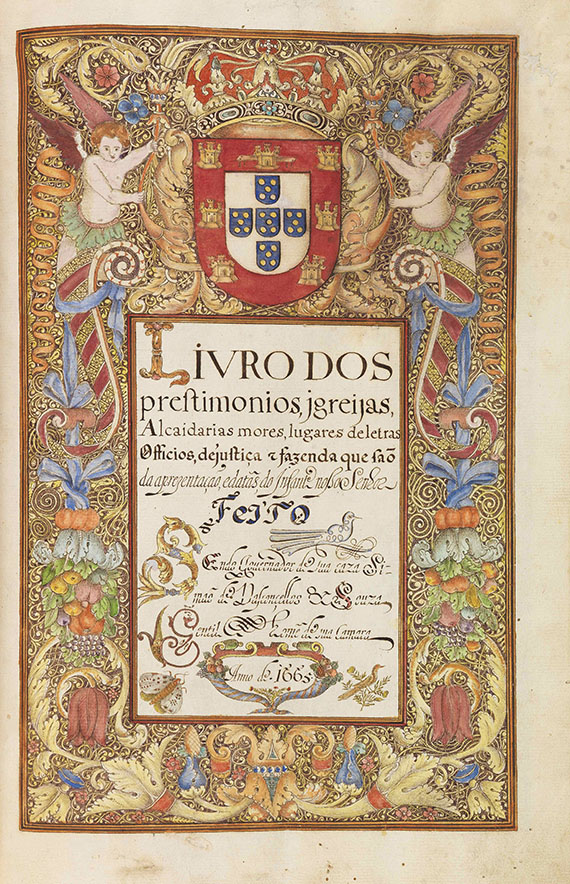 LIVRO DOS
prestimonios, jgreijas,
Alcaidarias mores, lugares de letras
Officios, dejustiça & fazenda que saõ
da apresentaçaõ, edatas do Infante nosso Senhor
de FEITO
SEndo Governador de sua caza Si-
maõ de Vasconcellos & Souza
Gentil Home de sua Camara
Anno de 1665